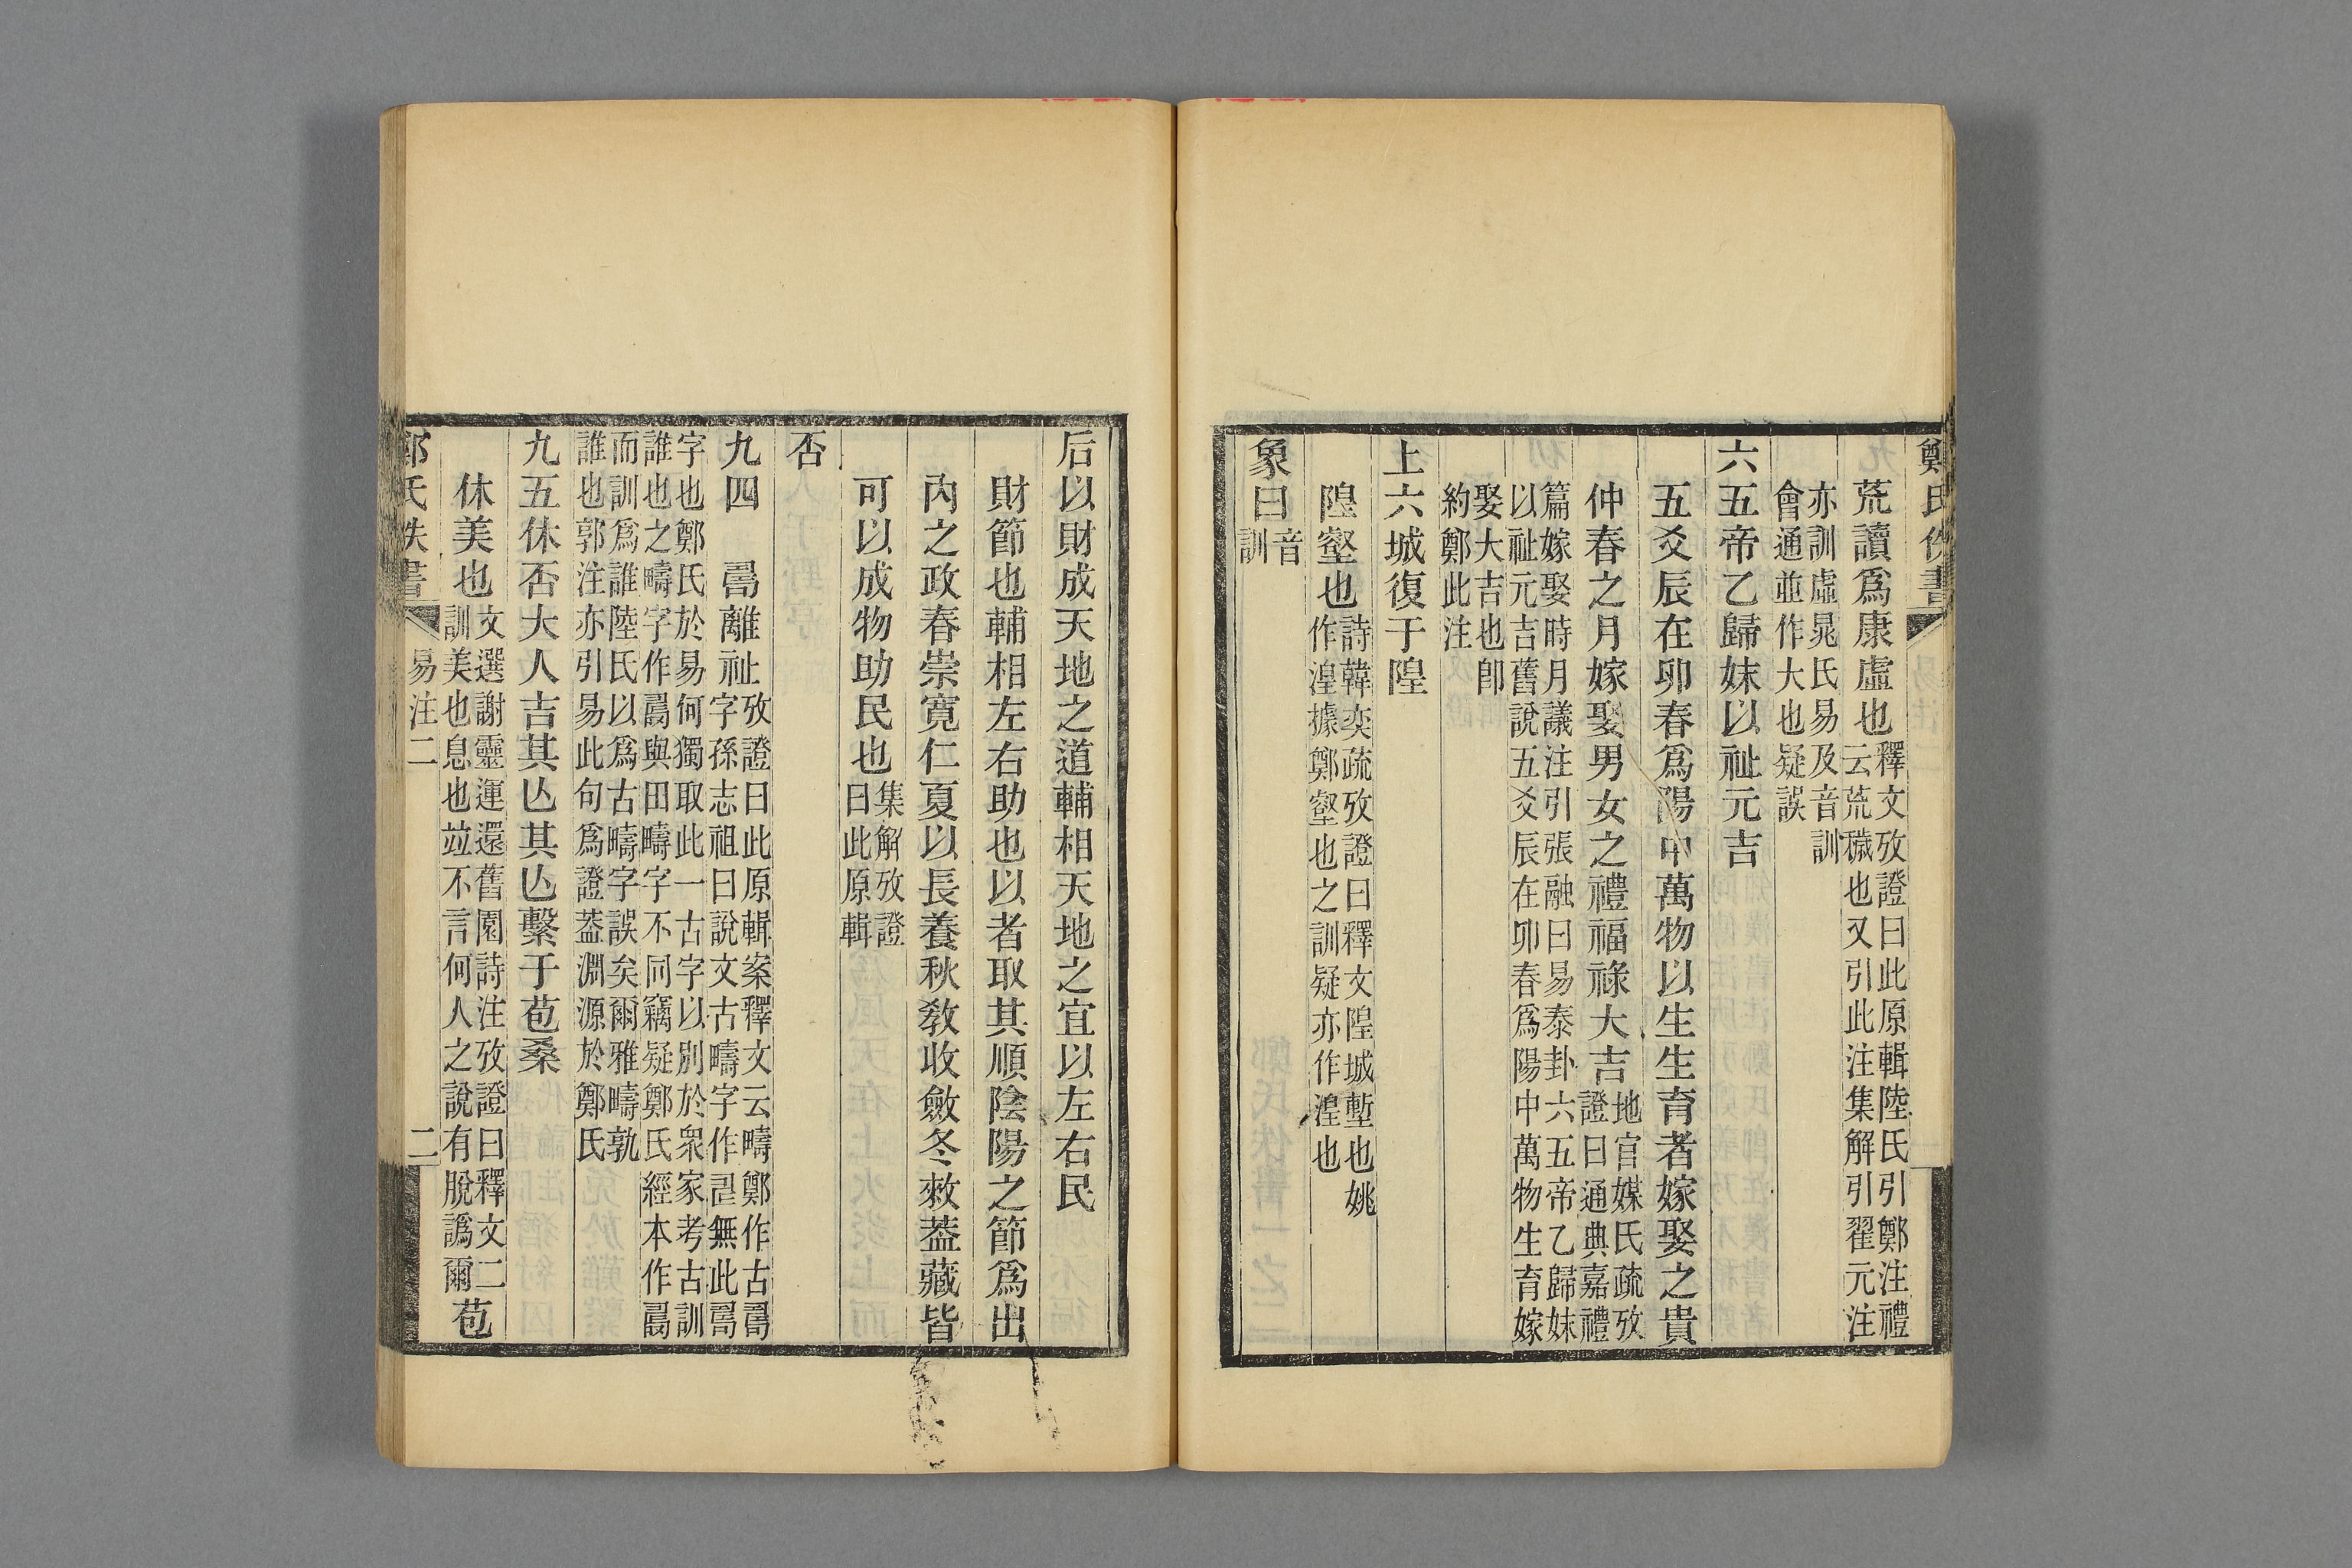 鄭氏佚書
荒讀爲康虛也釋文攷證曰此原輯陸氏引鄭注禮
云荒穢也又引此注集解引翟元注
亦訓虛晁氏易及音訓
會通並作大也疑誤
六五帝乙歸妹以祉元吉
五爻辰在卯春爲陽中萬物以生生育者嫁娶之貴
仲春之月嫁娶男女之禮福祿大吉地官媒氏疏攷
證曰通典嘉禮
篇嫁娶時月議注引張融曰易泰卦六五帝乙歸妹
以祉元吉舊說五爻辰在卯春爲陽中萬物生育嫁
娶大吉也卽
約鄭此注
上六城復于隍
隍壑也詩韓奕疏攷證曰釋文隍城塹也姚
作湟據鄭壑也之訓疑亦作湟也
象曰音
訓
后以財成天地之道輔相天地之宜以左右民
財節也輔相左右助也以者取其順陰陽之節爲出
內之政春崇寬仁夏以長養秋敎收斂冬敕葢藏皆
可以成物助民也集解攷證
曰此原輯
否
九四　𠷎離祉攷證曰此原輯案釋文云疇鄭作古𠷎
字孫志祖曰說文古疇字作𠃬無此𠷎
字也鄭氏於易何獨取此一古字以別於衆家考古訓
誰也之疇字作𠷎與田疇字不同竊疑鄭氏經本作𠷎
而訓爲誰陸氏以爲古疇字誤矣爾雅疇孰
誰也郭注亦引易此句爲證葢淵源於鄭氏
九五休否大人吉其亾其亾繫于苞桑
休美也文選謝靈運還舊園詩注攷證曰釋文二
訓美也息也竝不言何人之說有脫譌爾苞
鄭氏佚書
易注二
二